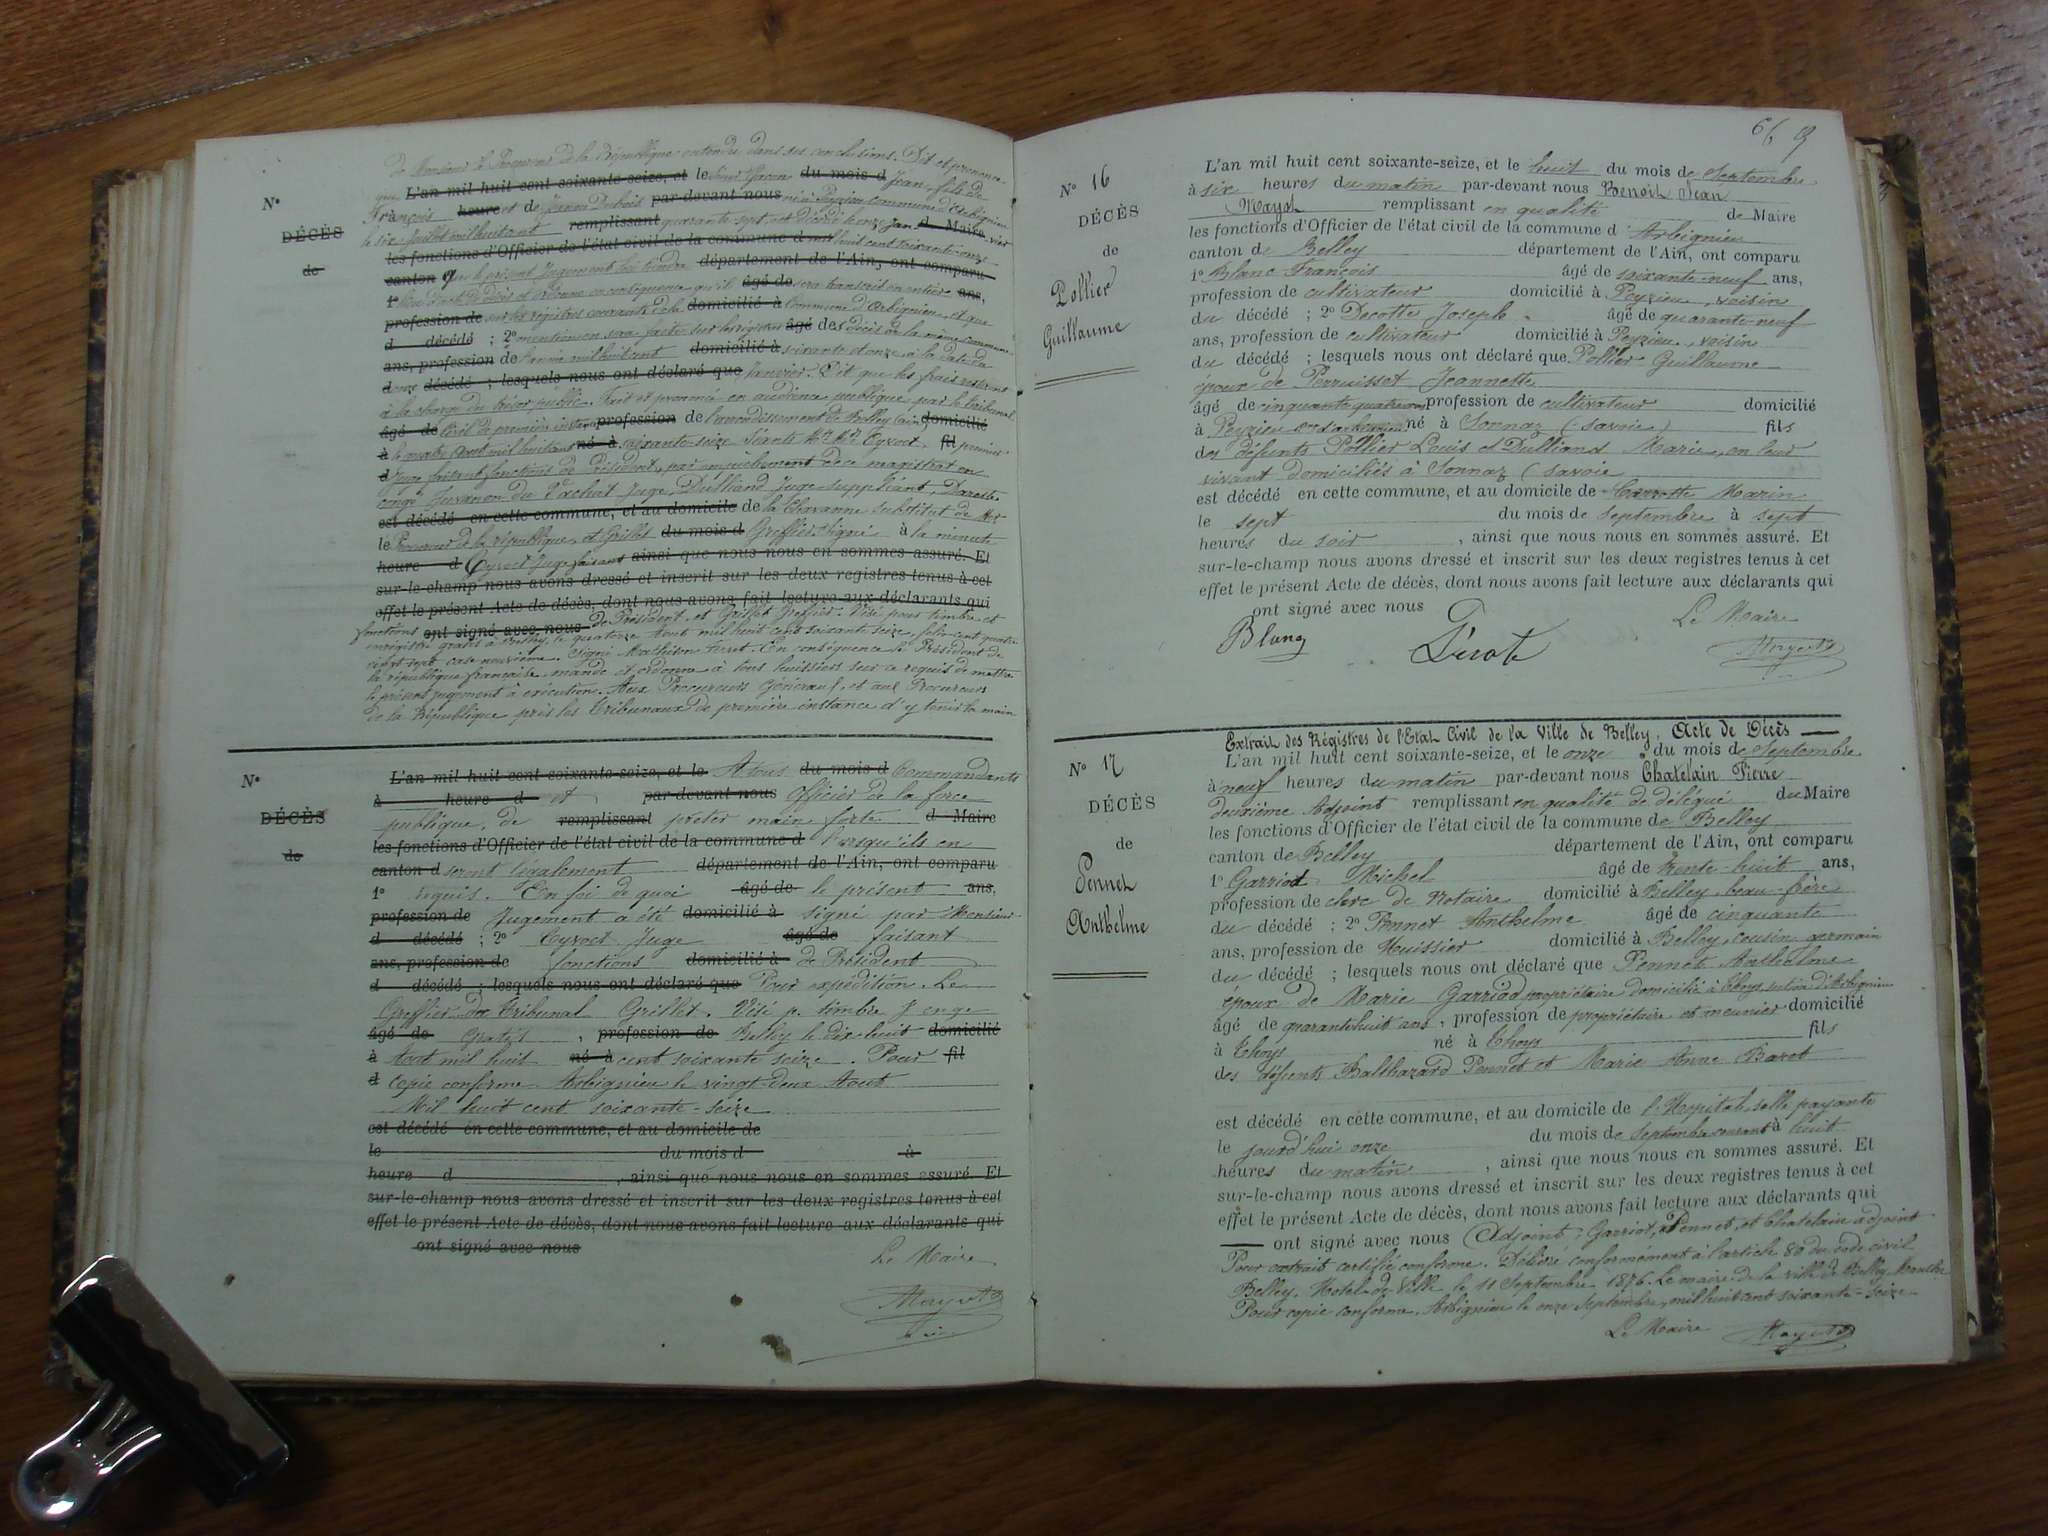 de Monsieur le Procureur de la République entendu dans ses conclusions. Dit et prononce
que L'an mil huit cent soixante-seize, et le du mois d Jean, fils de
François heure et de par-devant nous né à commune d'Arbignieu
le six Juillet mil huit cent remplissant quarante sept est décédé le onze Jan d Maire vier
les fonctions d'Officier de l'état civil de la commune d mil huit cent soixante onze
canton que le présent Jugement département de l'Ain, ont comparu
1° d'acte de décès et ordonne en conséquence qu'il âgé de sera transcrit en entier ans,
profession de sur les registres courants de la domicilié à Commune d'Arbignieu, et que
d décédé ; 2° mention en sera faite sur les registres âgé de des décès de la même commune
ans, profession de de l'année mil huit cent domicilié à soixante et onze à la date du
d onze décédé ; lesquels nous ont déclaré que Janvier. Dit que les frais resteront
à la charge du trésor public. Fait et prononcé en audience publique par le tribunal
âgé de Civil de première instance profession de l'arrondissement de Belley (ain) domicilié
à le quatre Août mil huit cent né à soixante-seize Séants Mr Mrs Cyvoct, fil premier
d Juge faisant fonctions de Président, par empêchement de ce magistrat en
congé Juvanon du Vachat Juge, Dulliand Juge suppléant, Dareste
est décédé en cette commune, et au domicile de de la Chavanne substitut de Mr
le Procureur de la république, et Grillet du mois d Greffier. Signé à la minute
heure d Cyvoct Juge faisant ainsi que nous nous en sommes assuré. Et
sur-le-champ nous avons dressé et inscrit sur les deux registres tenus à cet
effet le présent Acte de décès, dont nous avons fait lecture aux déclarants qui
fonctions ont signé avec nous de Président, et Grillet Greffier. Visé pour timbre et
enregistré gratis à Belley, le quatorze Août mil huit cent soixante seize, folio cent quatre
vingt sept case neuvième. Signé En conséquence le Président de
la république française mande et ordonne à tous huissiers sur ce requis de mettre
le présent jugement à exécution. Aux Procureurs Généraux, et aux Procureurs
de la République près les tribunaux de première instance d'y tenir la main
N°
DÉCÈS
de
L'an mil huit cent soixante-seize, et le A tous du mois d Commandants
à heure d et par-devant nous Officier de la force
publique, de remplissant prêter main forte d Maire
les fonctions d'Officier de l'état civil de la commune d lorsqu'ils en
canton d seront légalement département de l'Ain, ont comparu
1° requis. En foi de quoi âgé de le présent ans,
profession de Jugement a été domicilié à signé par Monsieur
d décédé ; 2° Cyvoct Juge âgé de faisant
ans, profession de fonctions domicilié à de Président
d décédé ; lesquels nous ont déclaré que Pour expédition. Le
Greffier du Tribunal Grillet. Visé p. timbre
âgé de Gratis , profession de Belley le dix huit domicilié
à Août mil huit né à cent soixante seize. Pour fil
d copie conforme Arbignieu le vingt-deux Août
Mil huit cent soixante-seize
est décédé en cette commune, et au domicile de
le du mois d à
heure d , ainsi que nous nous en sommes assuré. Et
sur-le-champ nous avons dressé et inscrit sur les deux registres tenus à cet
effet le présent Acte de décès, dont nous avons fait lecture aux déclarants qui
ont signé avec nous
Le Maire.
N°
DÉCÈS
de
66 9
N° 16
DÉCÈS
de
Pollier
Guillaume
L'an mil huit cent soixante-seize, et le huit du mois de Septembre
à six heures du matin par-devant nous Benoit Jean
remplissant en qualité de Maire
les fonctions d'Officier de l'état civil de la commune d Arbignieu
canton de Belley département de l'Ain, ont comparu
1° Blanc François âgé de soixante-neuf ans,
profession de cultivateur domicilié à Peyzieu, voisin
du décédé ; 2° Decotte Joseph âgé de quarante neuf
ans, profession de cultivateur domicilié à Peyzieu, voisin
du décédé ; lesquels nous ont déclaré que Pollier Guillaume
époux de Perruisset Jeannette
âgé de cinquante quatre ans profession de cultivateur domicilié
à Peyzieu né à Sonnaz (savoie) fils
des défunts Pollier Louis et Dulliand Marie, en leur
vivant domiciliés à Sonnaz (savoie
est décédé en cette commune, et au domicile de Carrotte Marin
le sept du mois de septembre à sept
heures du soir , ainsi que nous nous en sommes assuré. Et
sur-le-champ nous avons dressé et inscrit sur les deux registres tenus à cet
effet le présent Acte de décès, dont nous avons fait lecture aux déclarants qui
ont signé avec nous
Le Maire
N° 17
DÉCÈS
de
Pennet
Anthelme
Extrait des Régistres de l'Etat Civil de la Ville de Belley. Acte de Décès
L'an mil huit cent soixante-seize, et le onze du mois de Septembre
à neuf heures du matin par-devant nous Chatelain Pierre
deuxième Adjoint remplissant en qualité de délégué du Maire
les fonctions d'Officier de l'état civil de la commune de Belley
canton de Belley département de l'Ain, ont comparu
1° Garriod Michel âgé de trente-huit ans,
profession de clerc de Notaire domicilié à Belley, beau-frère
du décédé ; 2° Pennet Anthelme âgé de cinquante
ans, profession de Huissier domicilié à Belley, cousin germain
du décédé ; lesquels nous ont déclaré que Pennet Anthelme
époux de Marie Garriod propriétaire domicilié à Thoys, section d'Arbignieu
âgé de quarante huit ans , profession de propriétaire et meunier domicilié
à Thoys né à Thoys fils
des défunts Balthazard Pennet et Marie Anne Baret
est décédé en cette commune, et au domicile de l'Hopital, salle payante
le jourd'hui onze du mois de Septembre courant à huit
heures du matin , ainsi que nous nous en sommes assuré. Et
sur-le-champ nous avons dressé et inscrit sur les deux registres tenus à cet
effet le présent Acte de décès, dont nous avons fait lecture aux déclarants qui
ont signé avec nous Adjoint : Garriod, Pennet, et Chatelain adjoint
Pour extrait certifié conforme. Délivré conformément à l'article 80 du code civil
Belley, Hotel de Ville le 11 Septembre 1876. Le maire de la ville de Belley
Pour copie conforme, Arbignieu le onze Septembre, mil huit cent soixante-seize
Le Maire